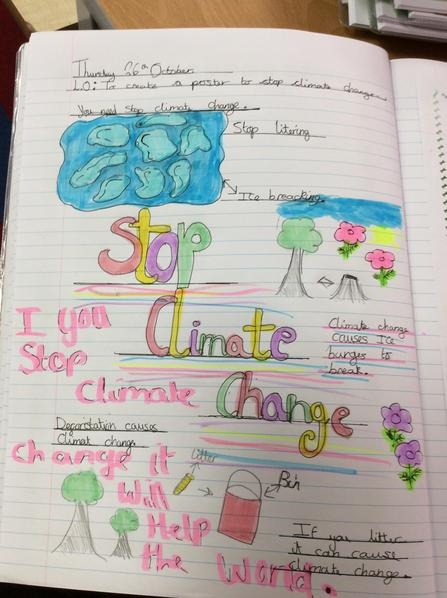 Thursday 26th October
L.O: To create a poster to stop climate change
You need stop climate change.
Stop litering
Ice breacking
Stop
Climate
Change
I you
Stop
Climate
Change it
Will
Help
the World.
Climate change
causes Ice
burges to
break.
Deforistation causes
climat change
Litter
Bin
If you litter
it can cause
climate change.